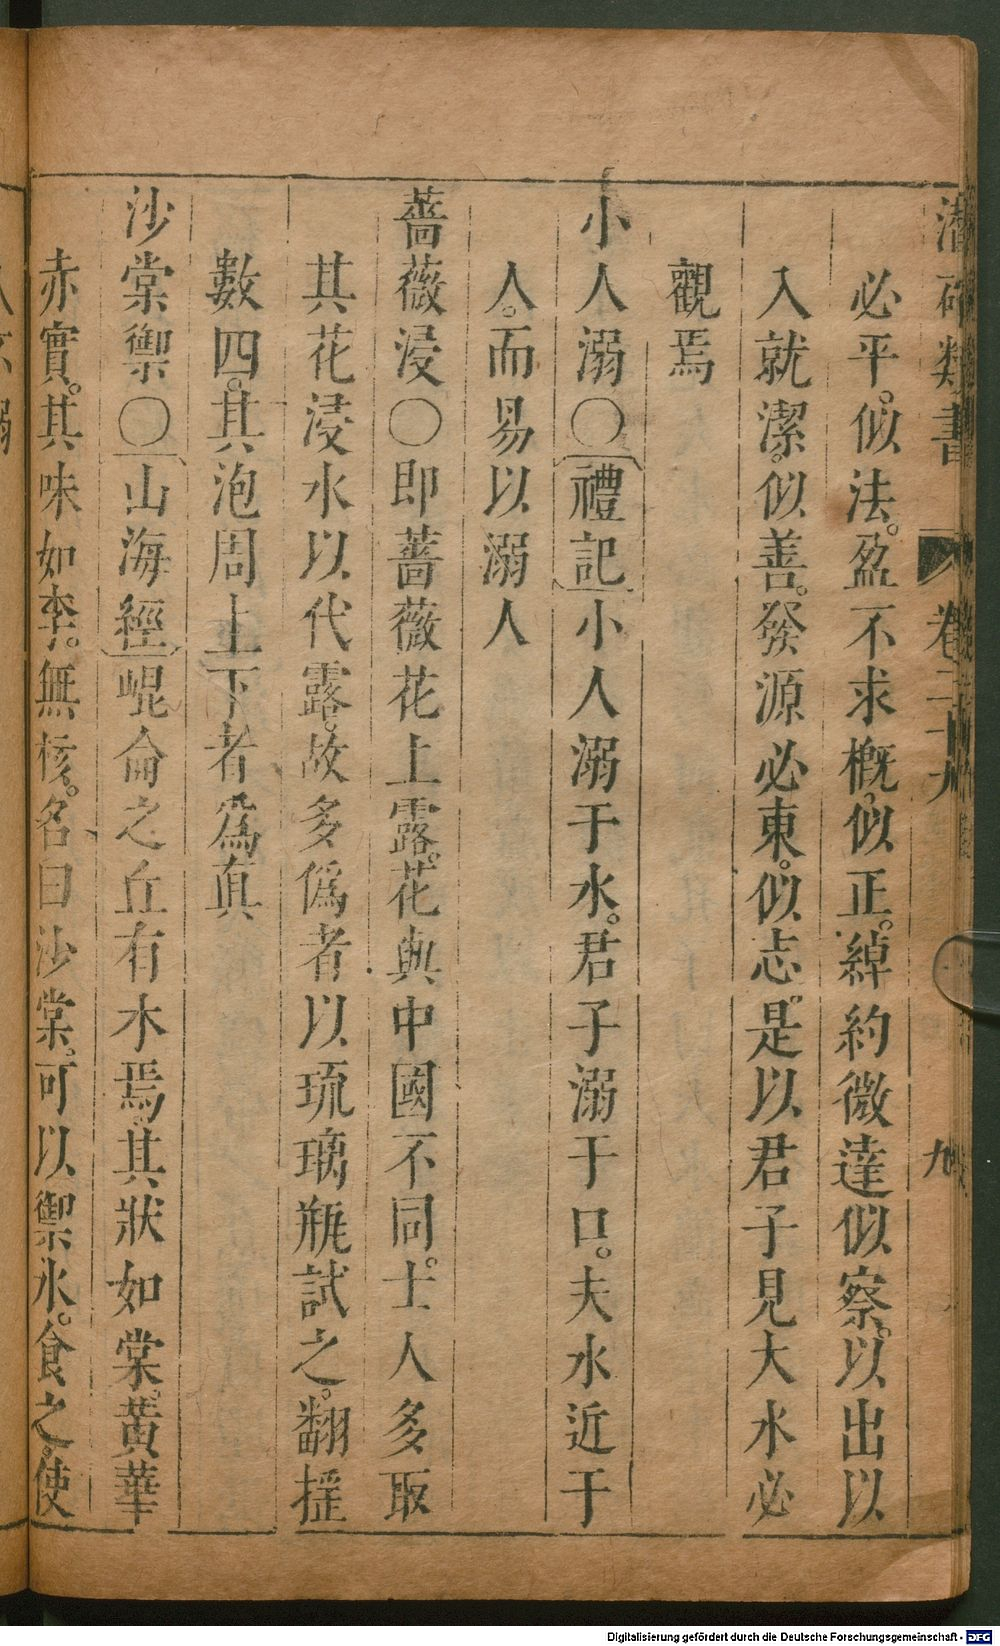 潛確類書 卷二十九 九
必平。似法。盈不求概。似正。綽約微達似察。以出以
入就潔。似善。發源必東。似志。是以君子見大水必
觀焉
小人溺〇禮記小人溺于水。君子溺于口。夫水近于
人。而易以溺人
薔薇浸〇即薔薇花上露。花與中國不同。士人多取
其花浸水以代露。故多僞者以琉璃瓶試之。翻搖
數四。其泡周上下者爲眞
沙棠禦〇山海經崐侖之丘有木焉。其狀如棠。黃華
赤實。其味如李。無核。名曰沙棠。可以禦水。食之。使
Digitalisierung gefördert durch die Deutsche Forschungsgemeinschaft - DFG